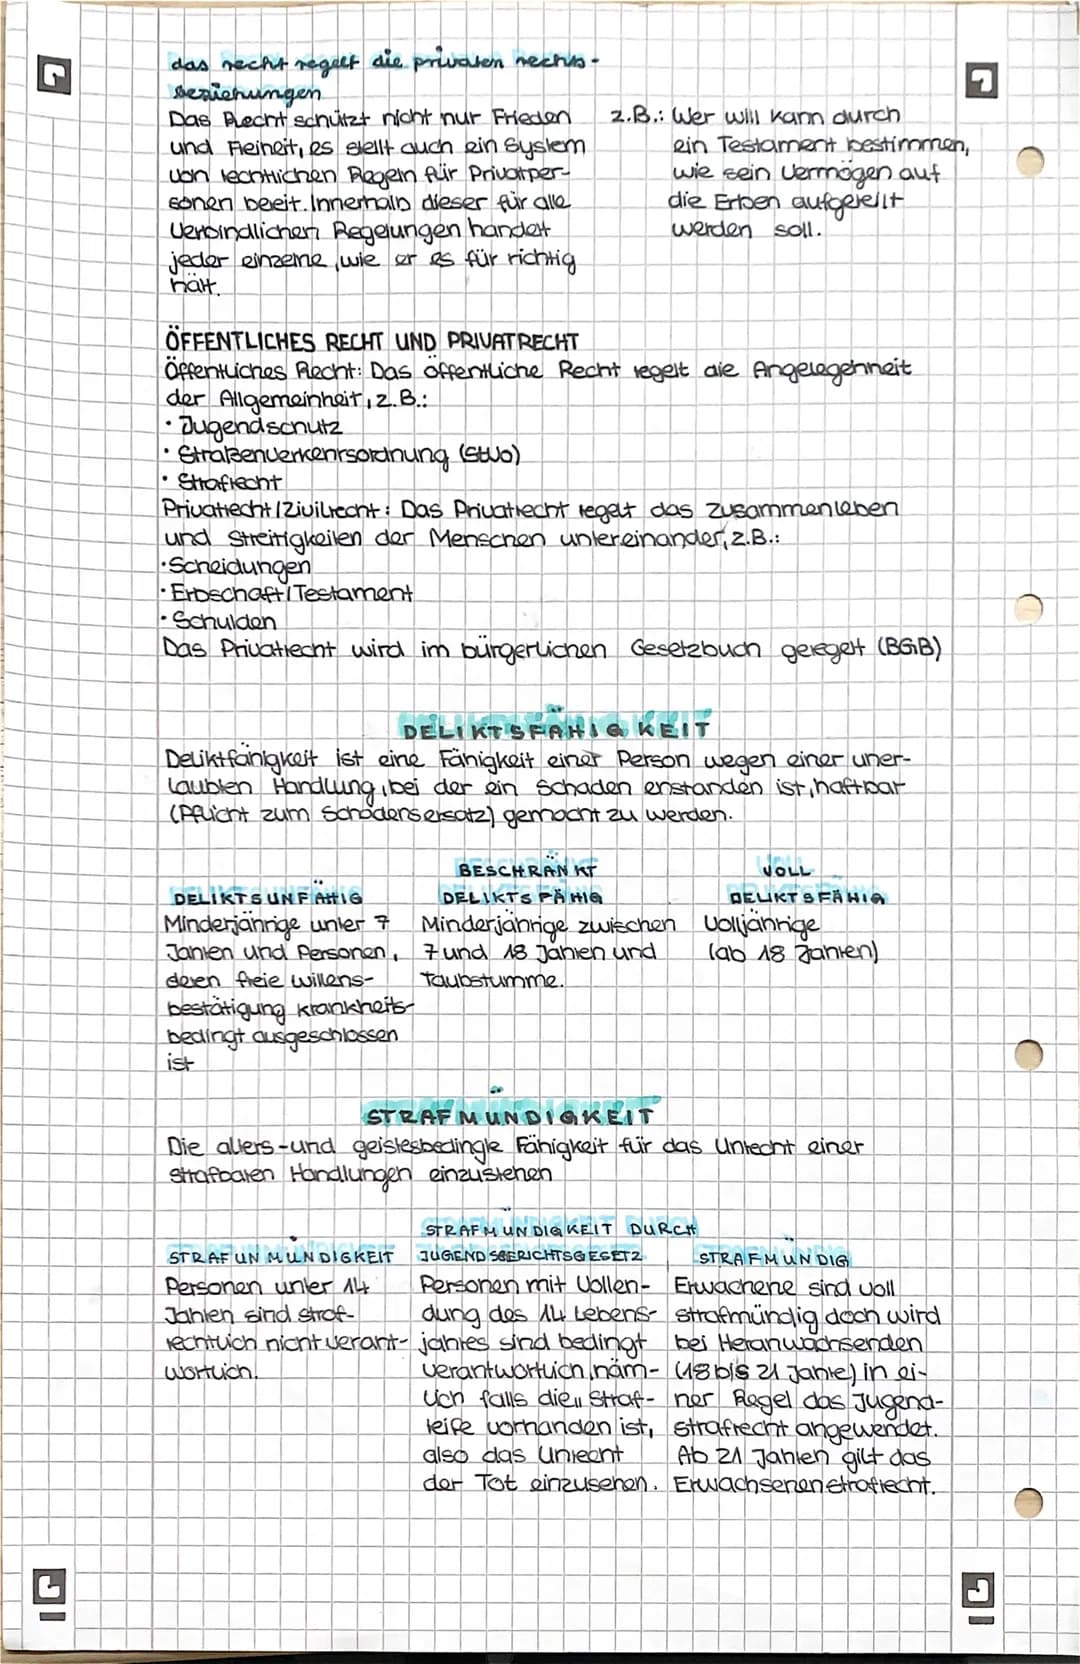 das recht regelt die privaten rechts-
beziehungen
Das Recht schützt nicht nur Frieden
und Freiheit, es stellt auch ein System
von rechtlichen Regeln für Privatper-
sonen bereit. Innerhalb dieser für alle
Verbindlichen Regelungen handelt
jeder einzelne, wie er es für richtig
hält.
z.B.: Wer will kann durch
ein Testament bestimmen,
wie sein Vermögen auf
die Erben aufgeteilt
werden soll.
ÖFFENTLICHES RECHT UND PRIVATRECHT
Öffentliches Recht: Das öffentliche Recht regelt die Angelegenheit
der Allgemeinheit, z.B.:
• Jugendschutz
• Straßenverkehrsordnung (StVo)
• Strafrecht
Privatrecht/Zivilrecht: Das Privatrecht regelt das zusammenleben
und Streitigkeiten der Menschen untereinander, z.B.:
• Scheidungen
• Erbschaft/Testament
• Schulden
Das Privatrecht wird im bürgerlichen Gesetzbuch geregelt (BGB)
DELIKTSFÄHIGKEIT
Deliktfähigkeit ist eine Fähigkeit einer Person wegen einer uner-
laubten Handlung, bei der ein Schaden enstanden ist, haftbar
(Pflicht zum Schadensersatz) gemacht zu werden.
DELIKTSUNFÄHIG
Minderjährige unter 7
Jahren und Personen,
deren freie willens-
bestätigung krankheits-
bedingt ausgeschlossen
ist
BESCHRÄNKT
DELIKTSFÄHIG
Minderjährige zwischen
7 und 18 Jahren und
Taubstumme.
VOLL
DELIKTSFÄHIG
Volljährige
(ab 18 Jahren)
STRAFMÜNDIGKEIT
Die alters-und geistesbedingte Fähigkeit für das Unrecht einer
strafbaren Handlungen einzustehen
STRAFUNMÜNDIGKEIT
Personen unter 14
Jahren sind straf-
rechtlich nicht verant-
wortlich.
STRAFMÜNDIGKEIT DURCH
JUGENDSGERICHTSGESETZ
Personen mit Vollen-
dung des 14 Lebens-
jahres sind bedingt
verantwortlich, näm-
lich falls die „Straf-
reife vorhanden ist,
also das Unrecht
der Tat einzusehen.
STRAFMÜNDIG
Erwachene sind voll
strafmündig doch wird
bei Heranwachsenden
(18 bis 21 Jahre) in ei-
ner Regel das Jugend-
strafrecht angewendet.
Ab 21 Jahren gilt das
Erwachsenenstrafrecht.